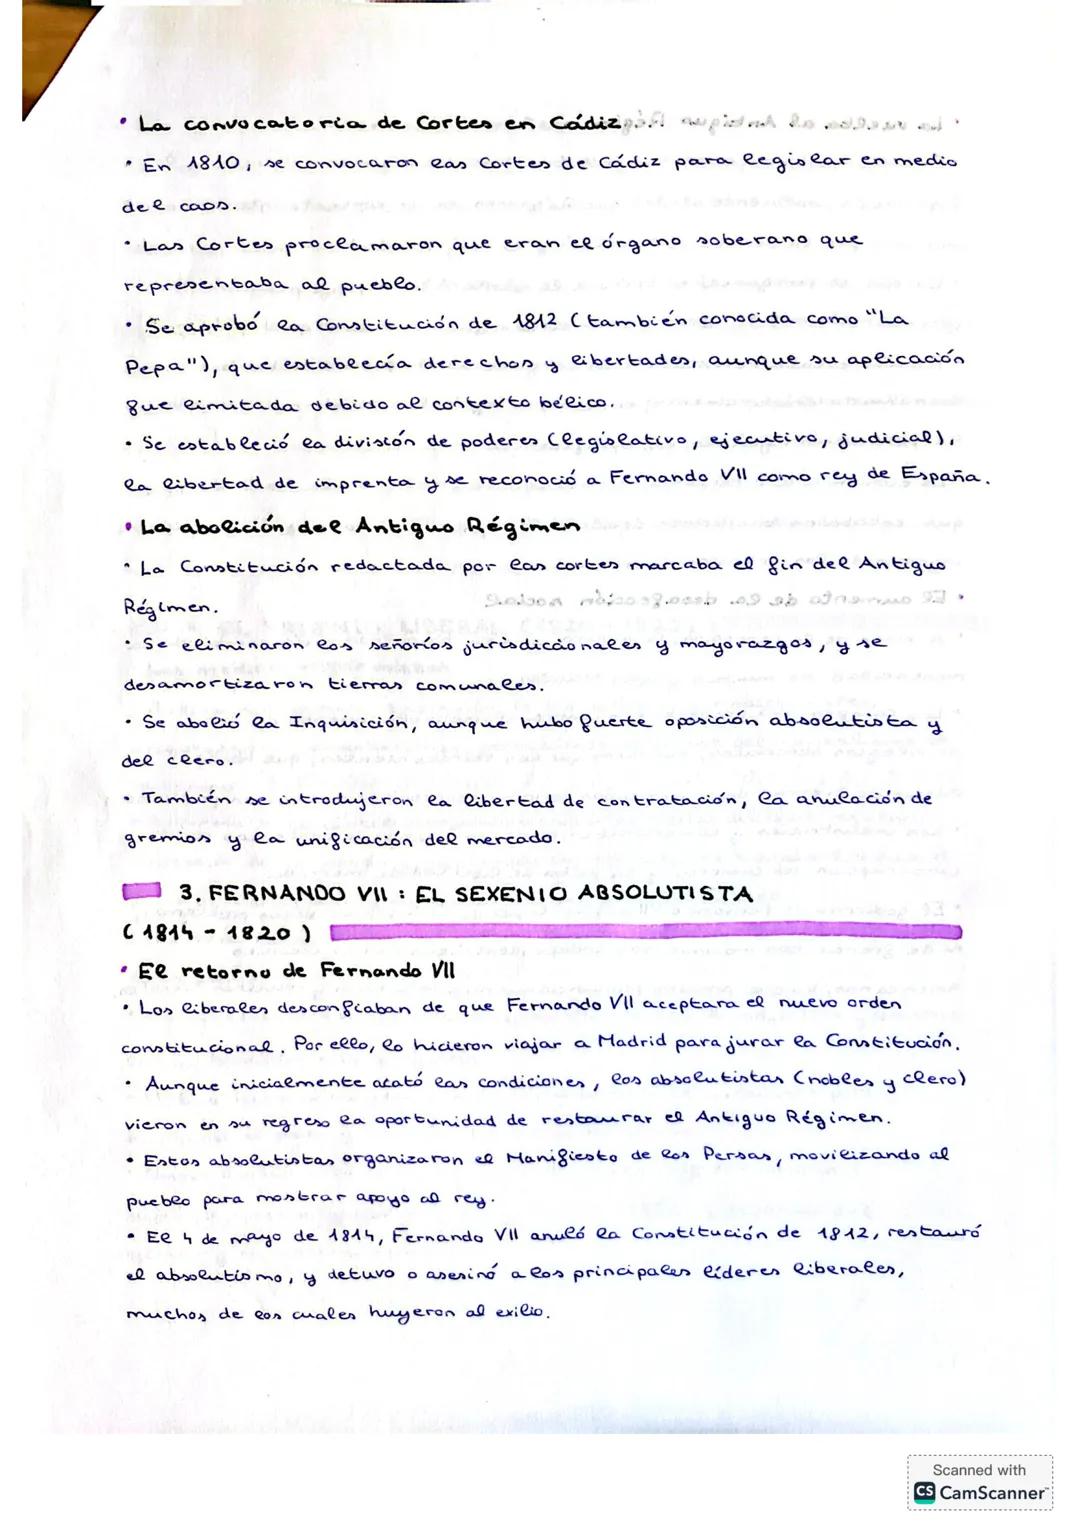 • La convocatoria de Cortes en Cádiz
• En 1810, se convocaron las Cortes de Cádiz para legislar en medio
del caos.
• Las Cortes proclamaron que eran el órgano soberano que
representaba al pueblo.
• Se aprobó la Constitución de 1812 (también conocida como "La
Pepa"), que establecía derechos y libertades, aunque su aplicación
fue limitada debido al contexto bélico.
• Se estableció la división de poderes (legislativo, ejecutivo, judicial),
la libertad de imprenta y se reconoció a Fernando VII como rey de España.
• La abolición del Antiguo Régimen
• La Constitución redactada por las cortes marcaba el fin del Antiguo
Régimen.
• Se eliminaron los señoríos jurisdiccionales y mayorazgos, y se
desamortizaron tierras comunales.
• Se abolió la Inquisición, aunque hubo fuerte oposición absolutista y
del clero.
• También se introdujeron la libertad de contratación, la anulación de
gremios y la unificación del mercado.
3. FERNANDO VII : EL SEXENIO ABSOLUTISTA
(1814 - 1820)
• El retorno de Fernando VII
• Los liberales desconfiaban de que Fernando VII aceptara el nuevo orden
constitucional. Por ello, lo hicieron viajar a Madrid para jurar la Constitución.
• Aunque inicialmente acató las condiciones, los absolutistas (nobles y clero)
vieron en su regreso la oportunidad de restaurar el Antiguo Régimen.
• Estos absolutistas organizaron el Manifiesto de los Persas, movilizando al
pueblo para mostrar apoyo al rey.
• El 4 de mayo de 1814, Fernando VII anuló la Constitución de 1812, restauró
el absolutismo, y detuvo o asesinó a los principales líderes liberales,
muchos de los cuales huyeron al exilio.
Scanned with
CS CamScanner